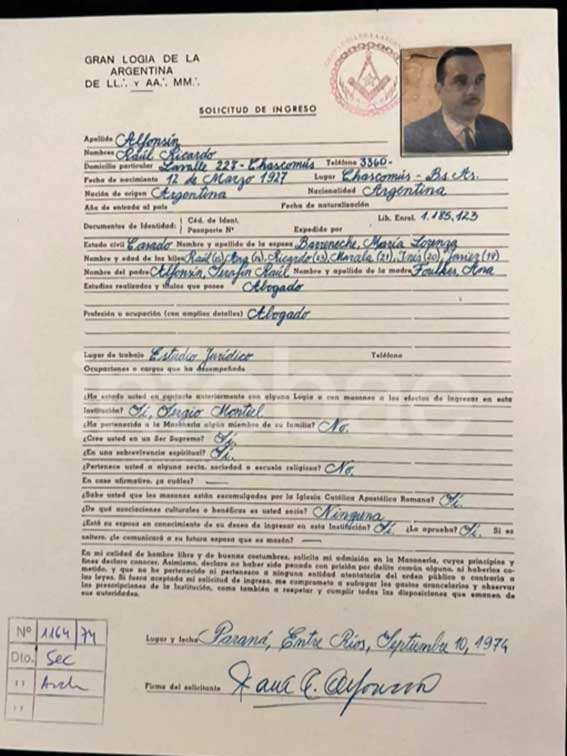 GRAN LOGIA DE LA
ARGENTINA
DE LL.·. Y AA.·. MM.·.
SOLICITUD DE INGRESO
Apellido Alfonsín
Nombres Raúl Ricardo
Domicilio particular Lavalle 227 - Chascomús Teléfono 3360-
Fecha de nacimiento 12 de Marzo 1927 Lugar Chascomús - Bs. As.
Nación de origen Argentina Nacionalidad Argentina
Año de entrada al país Fecha de naturalización
Documentos de Identidad: Céd. de Ident. Lib. Enrol. 1.185.123
Pasaporte Nº Expedido por
Estado civil Casado Nombre y apellido de la esposa Barreneche, María Lorenza
Nombre y edad de los hijos Raúl Ana Ricardo (23) Marcela (21), Inés (20), Javier
Nombre del padre Alfonsín, Serafín Raúl Nombre y apellido de la madre Foulkes, Ana
Estudios realizados y títulos que posee Abogado
Profesión u ocupación (con amplios detalles) Abogado
Lugar de trabajo Estudio Jurídico Teléfono
Ocupaciones o cargos que ha desempeñado
infobae
¿Ha estado usted en contacto anteriormente con alguna Logia o con masones a los efectos de ingresar en esta
Institución? Sí, Sergio Montiel
¿Ha pertenecido a la Masonería algún miembro de su familia? No.
¿Cree usted en un Ser Supremo? Sí.
¿En una sobrevivencia espiritual? Sí.
¿Pertenece usted a alguna secta, sociedad o escuela religiosa? No.
En caso afirmativo, ¿a cuáles? —
¿Sabe usted que los masones están excomulgados por la Iglesia Católica Apostólica Romana? Sí.
¿De qué asociaciones culturales o benéficas es usted socio? Ninguna
¿Está su esposa en conocimiento de su deseo de ingresar en esta Institución? Sí ¿Lo aprueba? Sí. Si es
soltero, ¿le comunicará a su futura esposa que es masón? —
En mi calidad de hombre libre y de buenas costumbres, solicito mi admisión en la Masonería, cuyos principios y
fines declaro conocer. Asimismo, declaro no haber sido penado con prisión por delito común alguno, ni haberlos co-
metido, y que no he pertenecido ni pertenezco a ninguna entidad atentatoria del orden público o contraria a
las leyes. Si fuera aceptada mi solicitud de ingreso, me comprometo a sufragar los gastos arancelarios y observar
las prescripciones de la Institución, como también a respetar y cumplir todas las disposiciones que emanen de
sus autoridades.
Nº 1164 74
Dto. Sec
" Arch
"
Lugar y fecha Paraná, Entre Ríos, Septiembre 10, 1974
Firma del solicitante Raúl R. Alfonsín